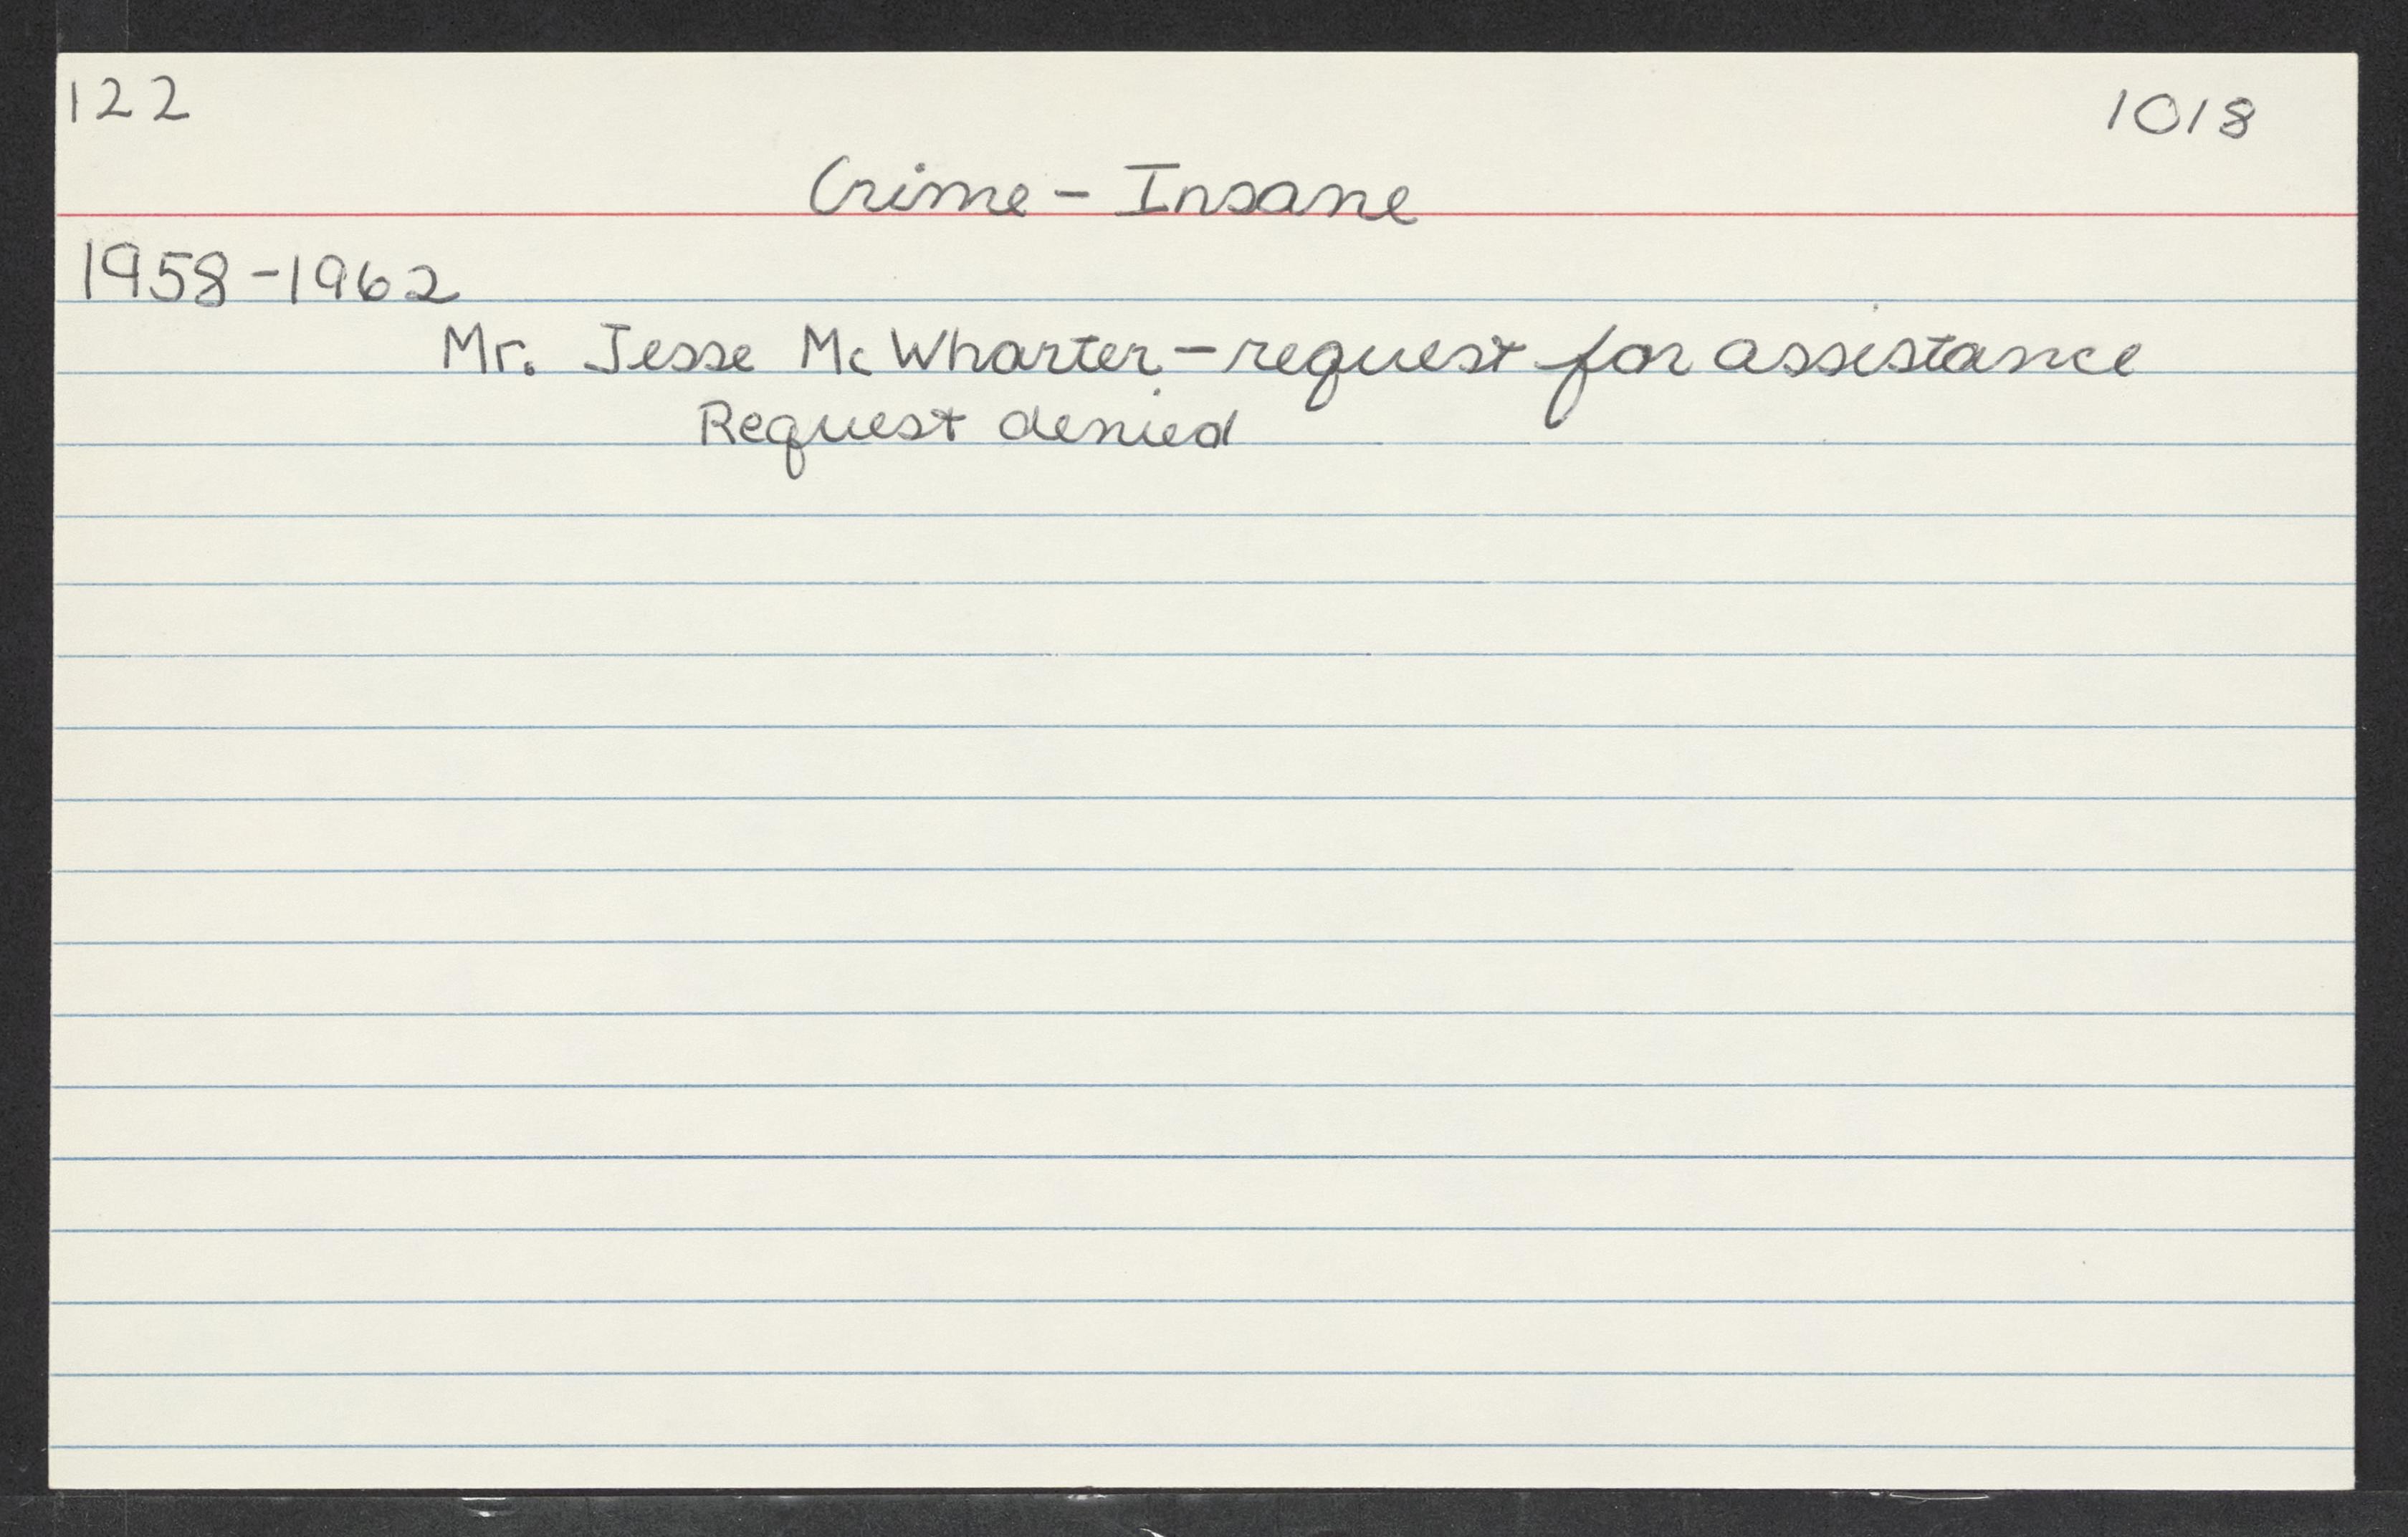 122 1018
Crime - Insane
1958-1962
Mr. Jesse McWharter - request for assistance
Request denied